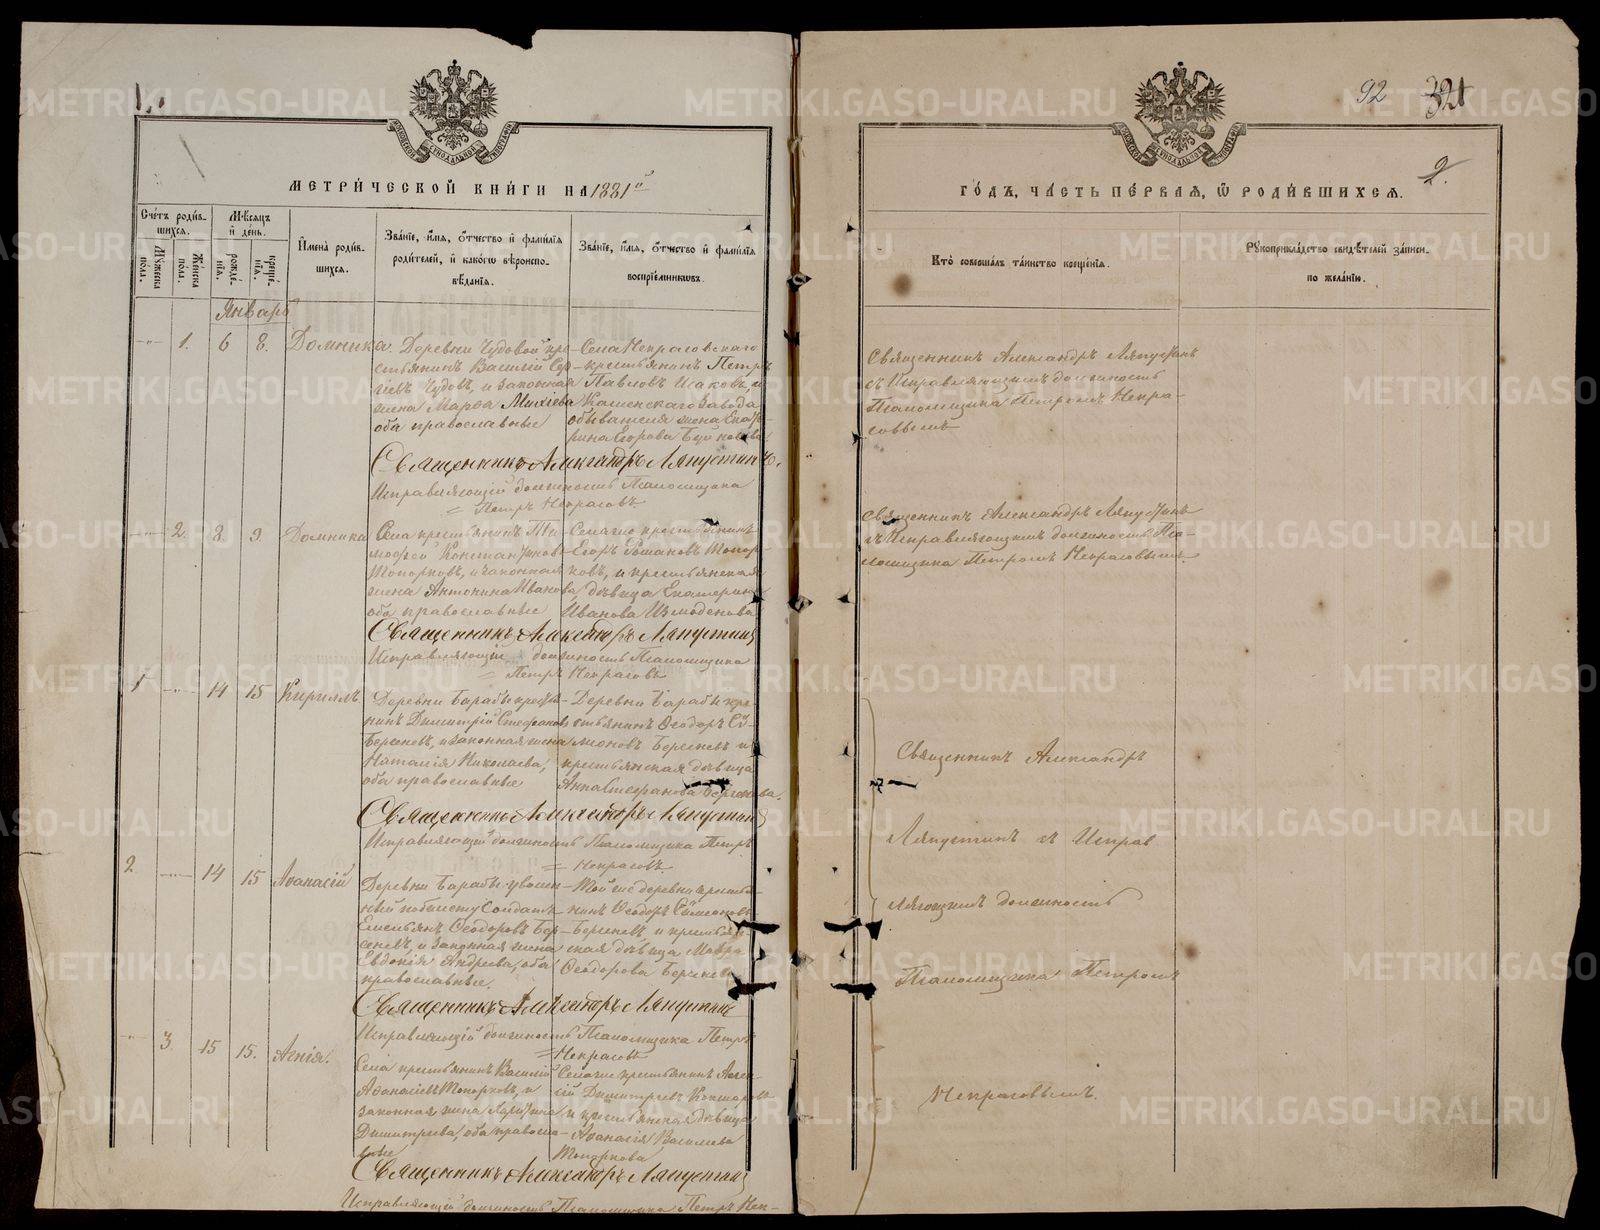 92 321
2.
МЕТРИЧЕСКОЙ КНИГИ НА 1881й
ГОДЪ, ЧАСТЬ ПЕРВАЯ, Ѡ РОДИВШИХСЯ.
Счетъ родив-
шихся.
Мужеска пола.
Женска пола.
Мѣсяцъ
и день.
рожде-
нія.
креще-
нія.
Имена родив-
шихся.
Званіе, имя, отчество и фамилія
родителей, и какого вѣроиспо-
вѣданія.
Званіе, имя, отчество и фамилія
воспріемниковъ.
Кто совершалъ таинство крещенія.
Рукоприкладство свидѣтелей записи
по желанію.
Январь
1. 6 8. Домника.
Деревни Чудовой кре-
стьянинъ Василій Сер-
гіевъ Чудовъ, и законная
жена Марѳа
оба православные
Села Некрасовскаго
крестьянинъ Петръ
Павловъ Исаковъ, и
Каменскаго Завода
обывателя жена Екате-
рина Егорова
Священникъ Александръ Ляпустинъ
съ Исправляющимъ должность
Псаломщика Петромъ Некра-
совымъ
Священникъ Александръ Ляпустинъ.
Исправляющій должность Псаломщика
Петръ Некрасовъ
2. 8. 9. Домника
Села крестьянинъ Ти-
моѳей Константиновъ
Топорковъ, и законная
жена Антонина Иванова
оба православные
Села же крестьянинъ
Егоръ Топор-
ковъ, и крестьянская
дѣвица Екатерина
Иванова Измоденова
Священникъ Александръ Ляпустинъ
съ Исправляющимъ должность Пса-
ломщика Петромъ Некрасовымъ.
Священникъ Александръ Ляпустинъ
Исправляющій должность Псаломщика
Петръ Некрасовъ
1 14 15 Кириллъ
Деревни Барабы крестья-
нинъ Димитрій Стефановъ
Берсеневъ, и законная жена
Наталія Николаева,
оба православные
Деревни Барабы кре-
стьянинъ Ѳеодоръ Си-
меоновъ Берсеневъ и
крестьянская дѣвица
Анна Стефанова Берсенева.
Священникъ Александръ
Ляпустинъ съ Исправ
ляющимъ должность
Псаломщика Петромъ
Некрасовымъ.
Священникъ Александръ Ляпустинъ
Исправляющій должность Псаломщика Петръ
Некрасовъ
2. 14 15 Аѳанасій
Деревни Барабы уволен-
ный по билету Солдатъ
Емельянъ Ѳеодоровъ Бер-
сеневъ, и законная жена
Евдокія Андреева, оба
православные.
Той же деревни крестья-
нинъ Ѳеодоръ Симеоновъ
Берсеневъ и крестьян-
ская дѣвица Мавра
Ѳеодорова Берсенева
Священникъ Александръ Ляпустинъ
Исправляющій должность Псаломщика Петръ
Некрасовъ
3. 15 15. Агнія.
Села крестьянинъ Василій
Аѳанасіевъ Топорковъ, и
законная жена
Димитріева, оба правосла-
вные
Села же крестьянинъ
Димитріевъ
и крестьянская дѣвица
Аѳанасія Василіева
Топоркова
Священникъ Александръ Ляпустинъ
Исправляющій должность Псаломщика Петръ Нек-
METRIKI.GASO-URAL.RU